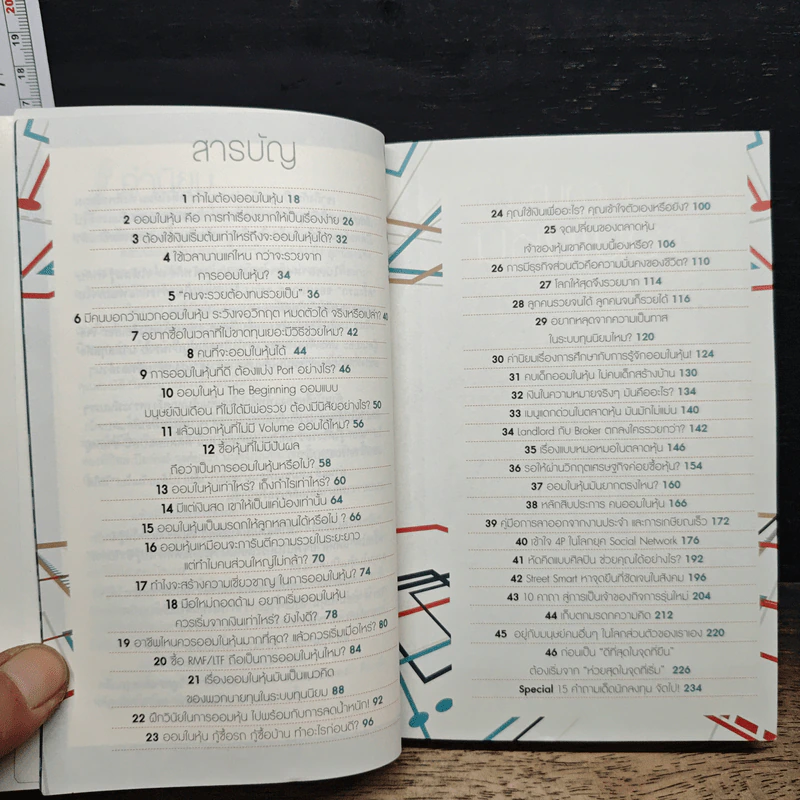 20
19
18
17
สารบัญ
1 ทำไมต้องออมในหุ้น 18
2 ออมในหุ้น คือ การทำเรื่องยากให้เป็นเรื่องง่าย 26
3 ต้องใช้เงินเริ่มต้นเท่าไหร่ถึงจะออมในหุ้นได้? 32
4 ใช้เวลานานแค่ไหน กว่าจะรวยจาก
การออมในหุ้น? 34
5 "คนจะรวยต้องทนรวยเป็น" 36
6 มีคนบอกว่าพวกออมในหุ้น ระวังเจอวิกฤต หมดตัวได้ จริงหรือเปล่า? 40
7 อยากซื้อในเวลาที่ไม่ขาดทุนเยอะมีวิธีช่วยไหม? 42
8 คนที่จะออมในหุ้นได้ 44
9 การออมในหุ้นที่ดี ต้องแบ่ง Port อย่างไร? 46
10 ออมในหุ้น The Beginning ออมแบบ
มนุษย์เงินเดือน ที่ไม่ได้มีพ่อรวย ต้องมีนิสัยอย่างไร? 50
11 แล้วพวกหุ้นที่ไม่มี Volume ออมได้ไหม? 56
12 ซื้อหุ้นที่ไม่มีปันผล
ถือว่าเป็นการออมในหุ้นหรือไม่? 58
13 ออมในหุ้นเท่าไหร่? เก็งกำไรเท่าไหร่? 60
14 มีแต่เงินสด เขาให้เป็นแค่น้องเท่านั้น 64
15 ออมในหุ้นเป็นมรดกให้ลูกหลานได้หรือไม่ ? 66
16 ออมหุ้นเหมือนจะการันตีความรวยในระยะยาว
แต่ทำไมคนส่วนใหญ่ไม่กล้า? 70
17 ทำไงจะสร้างความเชี่ยวชาญ ในการออมในหุ้น? 74
18 มือใหม่ถอดด้าม อยากเริ่มออมในหุ้น
ควรเริ่มจากเงินเท่าไหร่? ยังไงดี? 78
19 อาชีพไหนควรออมในหุ้นมากที่สุด? แล้วควรเริ่มเมื่อไหร่? 80
20 ซื้อ RMF/LTF ถือเป็นการออมในหุ้นไหม? 84
21 เรื่องออมในหุ้นมันเป็นแนวคิด
ของพวกนายทุนในระบบทุนนิยม 88
22 ฝึกวินัยในการออมหุ้น ไปพร้อมกับการลดน้ำหนัก! 92
23 ออมในหุ้น กู้ซื้อรถ กู้ซื้อบ้าน ทำอะไรก่อนดี? 96
24 คุณใช้เงินเพื่ออะไร? คุณเข้าใจตัวเองหรือยัง? 100
25 จุดเปลี่ยนของตลาดหุ้น
เจ้าของหุ้นเขาคิดแบบนี้เองหรือ? 106
26 การมีธุรกิจส่วนตัวคือความมั่นคงของชีวิต? 110
27 โลกให้สุดจึงรวยมาก 114
28 ลูกคนรวยจนได้ ลูกคนจนก็รวยได้ 116
29 อยากหลุดจากความเป็นทาส
ในระบบทุนนิยมไหม? 120
30 ค่านิยมเรื่องการศึกษากับการรู้จักออมในหุ้น! 124
31 คบเด็กออมในหุ้น ไม่คบเด็กสร้างบ้าน 130
32 เงินในความหมายจริงๆ มันคืออะไร? 134
33 เมนูแดกด่วนในตลาดหุ้น มันมักไม่แม่น 140
34 Landlord กับ Broker ตกลงใครรวยกว่า? 142
35 เรื่องแบบหมอหมอในตลาดหุ้น 146
36 รอให้ผ่านวิกฤตเศรษฐกิจค่อยซื้อหุ้น? 154
37 ออมในหุ้นมันยากตรงไหน? 160
38 หลักสิบประการ คนออมในหุ้น 166
39 คู่มือการลาออกจากงานประจำ และการเกษียณเร็ว 172
40 เข้าใจ 4P ในโลกยุค Social Network 176
41 หัดคิดแบบศิลปิน ช่วยคุณได้อย่างไร? 192
42 Street Smart หาจุดยืนที่ชัดเจนในสังคม 196
43 10 คาถา สู่การเป็นเจ้าของกิจการรุ่นใหม่ 204
44 เก็บตกมรดกความคิด 212
45 อยู่กับมนุษย์คนอื่นๆ ในโลกส่วนตัวของเราเอง 220
46 ก่อนเป็น "ดีที่สุดในจุดที่ยืน"
ต้องเริ่มจาก "ห่วยสุดในจุดที่เริ่ม" 226
Special 15 คำถามเด็ดนักลงทุน จัดไป! 234